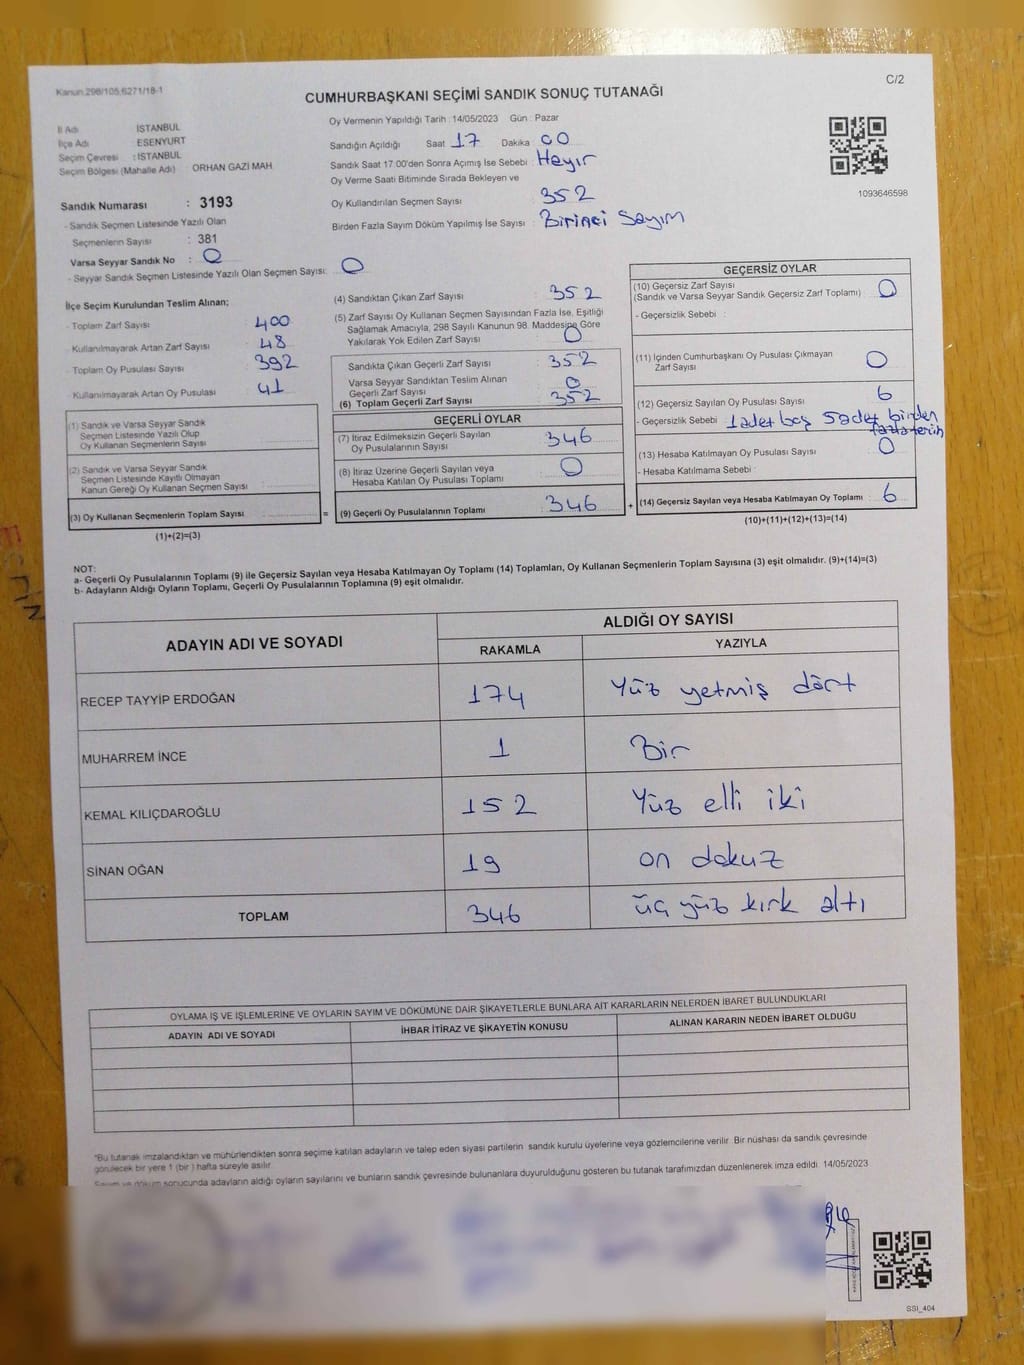 Kanun 298/105,6271/18-1
C/2
CUMHURBAŞKANI SEÇİMİ SANDIK SONUÇ TUTANAĞI
İl Adı İSTANBUL
İlçe Adı ESENYURT
Seçim Çevresi : İSTANBUL
Seçim Bölgesi (Mahalle Adı) ORHAN GAZİ MAH
Sandık Numarası : 3193
- Sandık Seçmen Listesinde Yazılı Olan
Seçmenlerin Sayısı : 381
Varsa Seyyar Sandık No : 0
- Seyyar Sandık Seçmen Listesinde Yazılı Olan Seçmen Sayısı: 0
Oy Vermenin Yapıldığı Tarih : 14/05/2023 Gün : Pazar
Sandığın Açıldığı Saat 17 Dakika : 00
Sandık Saat 17:00'den Sonra Açımış İse Sebebi : Hayır
Oy Verme Saati Bitiminde Sırada Bekleyen ve
Oy Kullandırılan Seçmen Sayısı : 352
Birden Fazla Sayım Döküm Yapılmış İse Sayısı : Birinci Sayım
1093646598
İlçe Seçim Kurulundan Teslim Alınan;
- Toplam Zarf Sayısı : 400
- Kullanılmayarak Artan Zarf Sayısı : 48
- Toplam Oy Pusulası Sayısı : 392
- Kullanılmayarak Artan Oy Pusulası : 41
(1) Sandık ve Varsa Seyyar Sandık
Seçmen Listesinde Yazılı Olup
Oy Kullanan Seçmenlerin Sayısı :
(2) Sandık ve Varsa Seyyar Sandık
Seçmen Listesinde Kayıtlı Olmayan
Kanun Gereği Oy Kullanan Seçmen Sayısı :
(3) Oy Kullanan Seçmenlerin Toplam Sayısı : =
(1)+(2)=(3)
(4) Sandıktan Çıkan Zarf Sayısı : 352
(5) Zarf Sayısı Oy Kullanan Seçmen Sayısından Fazla İse, Eşitliği
Sağlamak Amacıyla, 298 Sayılı Kanunun 98. Maddesine Göre
Yakılarak Yok Edilen Zarf Sayısı : 0
Sandıkta Çıkan Geçerli Zarf Sayısı : 352
Varsa Seyyar Sandıktan Teslim Alınan
Geçerli Zarf Sayısı : 0
(6) Toplam Geçerli Zarf Sayısı : 352
GEÇERLİ OYLAR
(7) İtiraz Edilmeksizin Geçerli Sayılan
Oy Pusulasının Sayısı : 346
(8) İtiraz Üzerine Geçerli Sayılan veya
Hesaba Katılan Oy Pusulası Toplamı : 0
(9) Geçerli Oy Pusulalarının Toplamı : 346 +
GEÇERSİZ OYLAR
(10) Geçersiz Zarf Sayısı
(Sandık ve Varsa Seyyar Sandık Geçersiz Zarf Toplamı) : 0
- Geçersizlik Sebebi :
(11) İçinden Cumhurbaşkanı Oy Pusulası Çıkmayan
Zarf Sayısı : 0
(12) Geçersiz Sayılan Oy Pusulası Sayısı : 6
- Geçersizlik Sebebi : 1 adet boş 5 adet birden
fazla tercih
(13) Hesaba Katılmayan Oy Pusulası Sayısı : 0
- Hesaba Katılmama Sebebi :
(14) Geçersiz Sayılan veya Hesaba Katılmayan Oy Toplamı : 6
(10)+(11)+(12)+(13)=(14)
NOT:
a- Geçerli Oy Pusulalarının Toplamı (9) ile Geçersiz Sayılan veya Hesaba Katılmayan Oy Toplamı (14) Toplamları, Oy Kullanan Seçmenlerin Toplam Sayısına (3) eşit olmalıdır. (9)+(14)=(3)
b- Adayların Aldığı Oyların Toplamı, Geçerli Oy Pusulalarının Toplamına (9) eşit olmalıdır.
ADAYIN ADI VE SOYADI
ALDIĞI OY SAYISI
RAKAMLA YAZIYLA
RECEP TAYYİP ERDOĞAN 174 Yüz yetmiş dört
MUHARREM İNCE 1 Bir
KEMAL KILIÇDAROĞLU 152 Yüz elli iki
SİNAN OĞAN 19 on dokuz
TOPLAM 346 üç yüz kırk altı
OYLAMA İŞ VE İŞLEMLERİNE VE OYLARIN SAYIM VE DÖKÜMÜNE DAİR ŞİKAYETLERLE BUNLARA AİT KARARLARIN NELERDEN İBARET BULUNDUKLARI
ADAYIN ADI VE SOYADI İHBAR İTİRAZ VE ŞİKAYETİN KONUSU ALINAN KARARIN NEDEN İBARET OLDUĞU
*Bu tutanak imzalandıktan ve mühürlendikten sonra seçime katılan adayların ve talep eden siyasi partilerin sandık kurulu üyelerine veya gözlemcilerine verilir. Bir nüshası da sandık çevresinde
görülecek bir yere 1 (bir) hafta süreyle asılır.
Sayım ve döküm sonucunda adayların aldığı oyların sayılarını ve bunların sandık çevresinde bulunanlara duyurulduğunu gösteren bu tutanak tarafımızdan düzenlenerek imza edildi. 14/05/2023
SSI_404